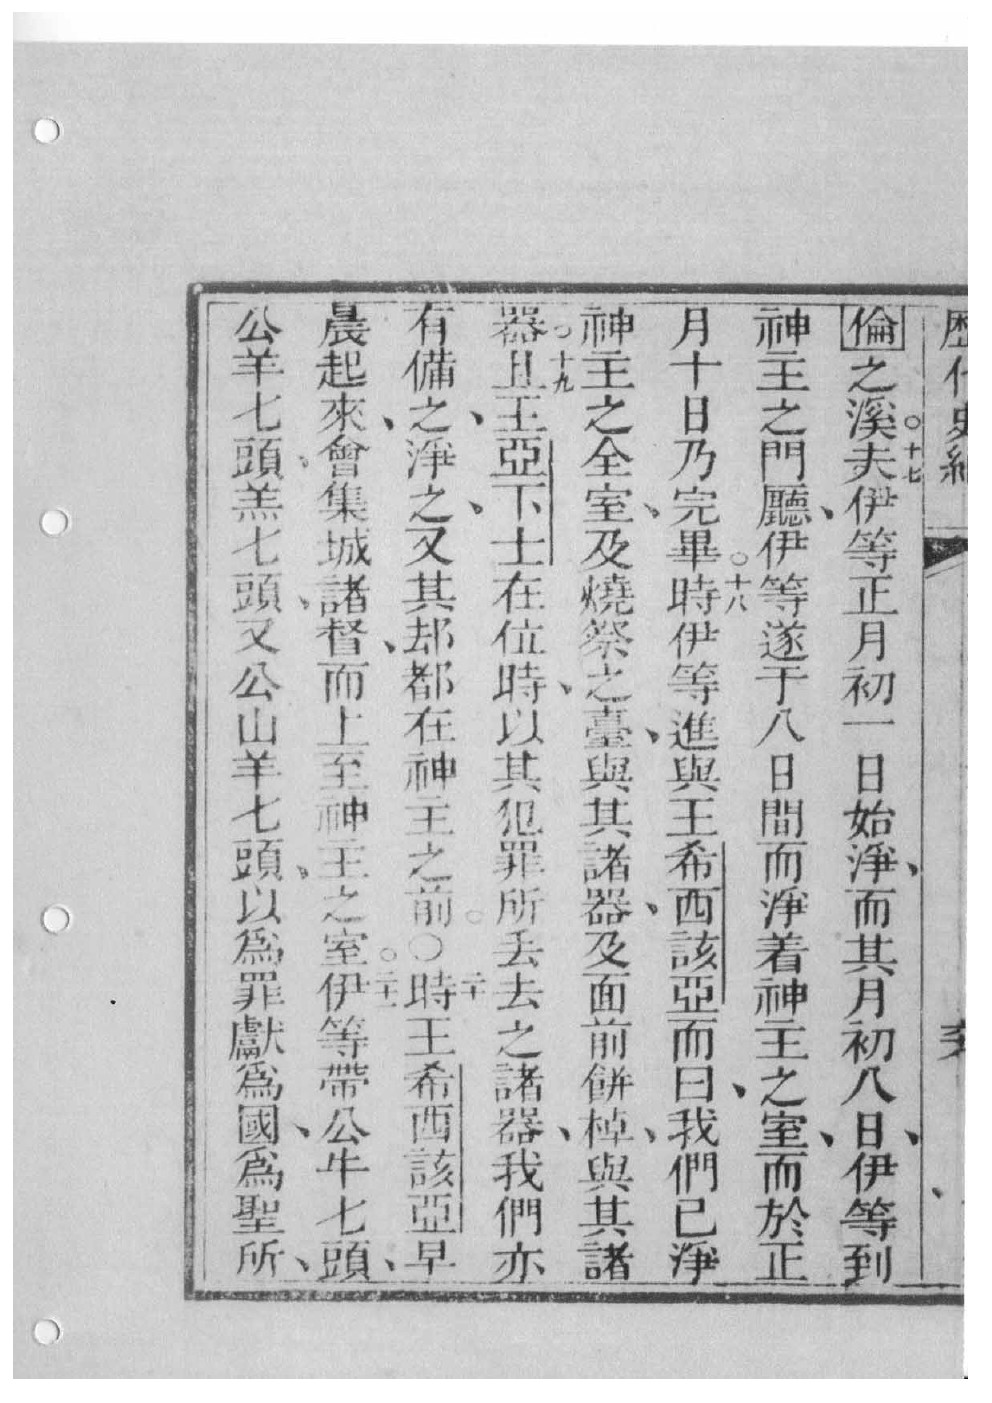 歷代史紀
倫之溪○十七夫伊等正月初一日始淨、而其月初八日、伊等到
神主之門廳、伊等遂于八日間而淨着神主之室、而於正
月十日乃完畢○十八時伊等進與王希西該亞而曰、我們已淨
神主之全室、及燒祭之臺、與其諸器、及面前餅棹、與其諸
器○十九且王亞下士在位時、以其犯罪所丢去之諸器、我們亦
有備之、淨之、又其却都在神主之前○〇二十時王希西該亞早
晨起來、會集城諸督、而上至神主之室○二十一伊等帶公牛七頭、
公羊七頭、羔七頭、又公山羊七頭、以為罪獻為國、為聖所、